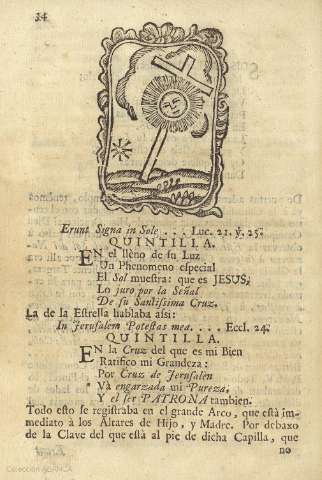 34
Erunt Signa in Sole . . . Luc. 21. ℣. 25.
QUINTILLA.
EN el lleno de su Luz
Un Phenomeno especial
El Sol muestra: que es JESUS;
Lo juro por la Señal
De su Santissima Cruz.
La de la Estrella hablaba assi:
In Jerusalem Potestas mea. . . . Eccl. 24.
QUINTILLA.
EN la Cruz del que es mi Bien
Ratifico mi Grandeza:
Por Cruz de Jerusalèn
Và engarzada mi Pureza,
Y el ser PATRONA tambien.
Todo esto se registraba en el grande Arco, que està im-
mediato à los Altares de Hijo, y Madre. Por debaxo
de la Clave del que està al pie de dicha Capilla, que
no